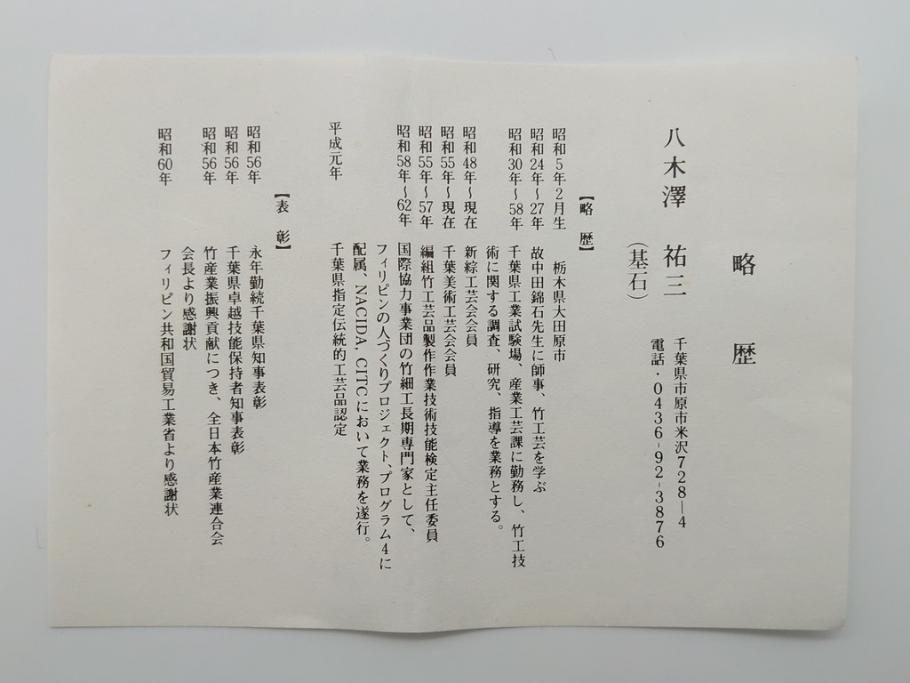 略　歴
八木澤　祐三
（基石）
千葉県市原市米沢728―4
電話・0436-92-3876
【略　歴】
昭和5年2月生　栃木県大田原市
昭和24年〜27年　故中田錦石先生に師事、竹工芸を学ぶ
昭和30年〜58年　千葉県工業試験場、産業工芸課に勤務し、竹工技
術に関する調査、研究、指導を業務とする。
昭和48年〜現在　新綜工芸会会員
昭和55年〜現在　千葉美術工芸会会員
昭和55年〜57年　編組竹工芸品製作作業技術技能検定主任委員
昭和58年〜62年　国際協力事業団の竹細工長期専門家として、
フィリピンの人づくりプロジェクト、プログラム4に
配属、NACIDA, CITCにおいて業務を遂行。
平成元年　千葉県指定伝統的工芸品認定
【表　彰】
昭和56年　永年勤続千葉県知事表彰
昭和56年　千葉県卓越技能保持者知事表彰
昭和56年　竹産業振興貢献につき、全日本竹産業連合会
会長より感謝状
昭和60年　フィリピン共和国貿易工業省より感謝状